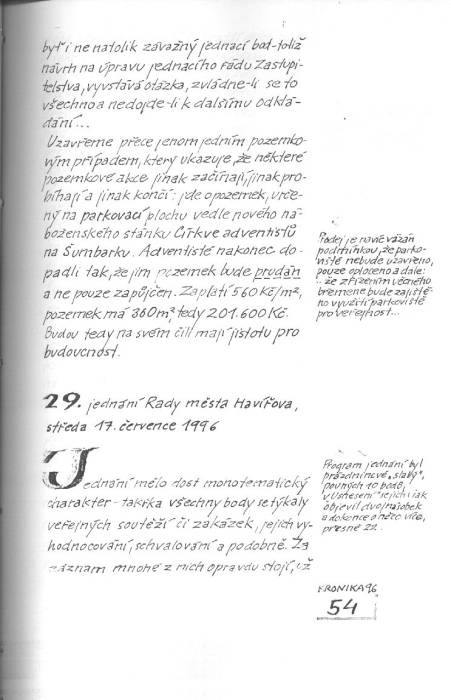 byť i ne natolik závažný jednací bod - totiž
návrh na úpravu jednacího řádu Zastupi-
telstva, vyvstává otázka, zvládne-li se to
všechno a nedojde-li k dalšímu odklá-
dání...
Uzavřeme přece jenom jedním pozemko-
vým případem, který ukazuje, že některé
pozemkové akce jinak začínají, jinak pro-
bíhají a jinak končí: jde o pozemek, urče-
ný na parkovací plochu vedle nového ná-
boženského stánku Církve adventistů
na Šumbarku. Adventisté nakonec do-
padli tak, že jim pozemek bude prodán
a ne pouze zapůjčen. Zaplatí 560 Kč/m²,
pozemek má 360 m² tedy 201.600 Kč.
Budou tedy na svém čili mají jistotu pro
budoucnost.
Prodej je navíc vázán
podmínkou, že parko-
viště nebude uzavřeno,
pouze oploceno a dále:
.. že zřízením věcného
břemene bude zajiště-
no využití parkoviště
pro veřejnost...
29. jednání Rady města Havířova,
středa 17. července 1996
Jednání mělo dost monotematický
charakter - takřka všechny body se týkaly
veřejných soutěží či zakázek, jejich vy-
hodnocování, schvalování a podobně. Za
záznam mnohé z nich opravdu stojí, už
Program jednání byl
prázdninově „slabý“,
pouhých 10 bodů,
v Usnesení jejich však
objevil dvojnásobek
a dokonce o něco víc,
přesně 22.
KRONIKA 96
54